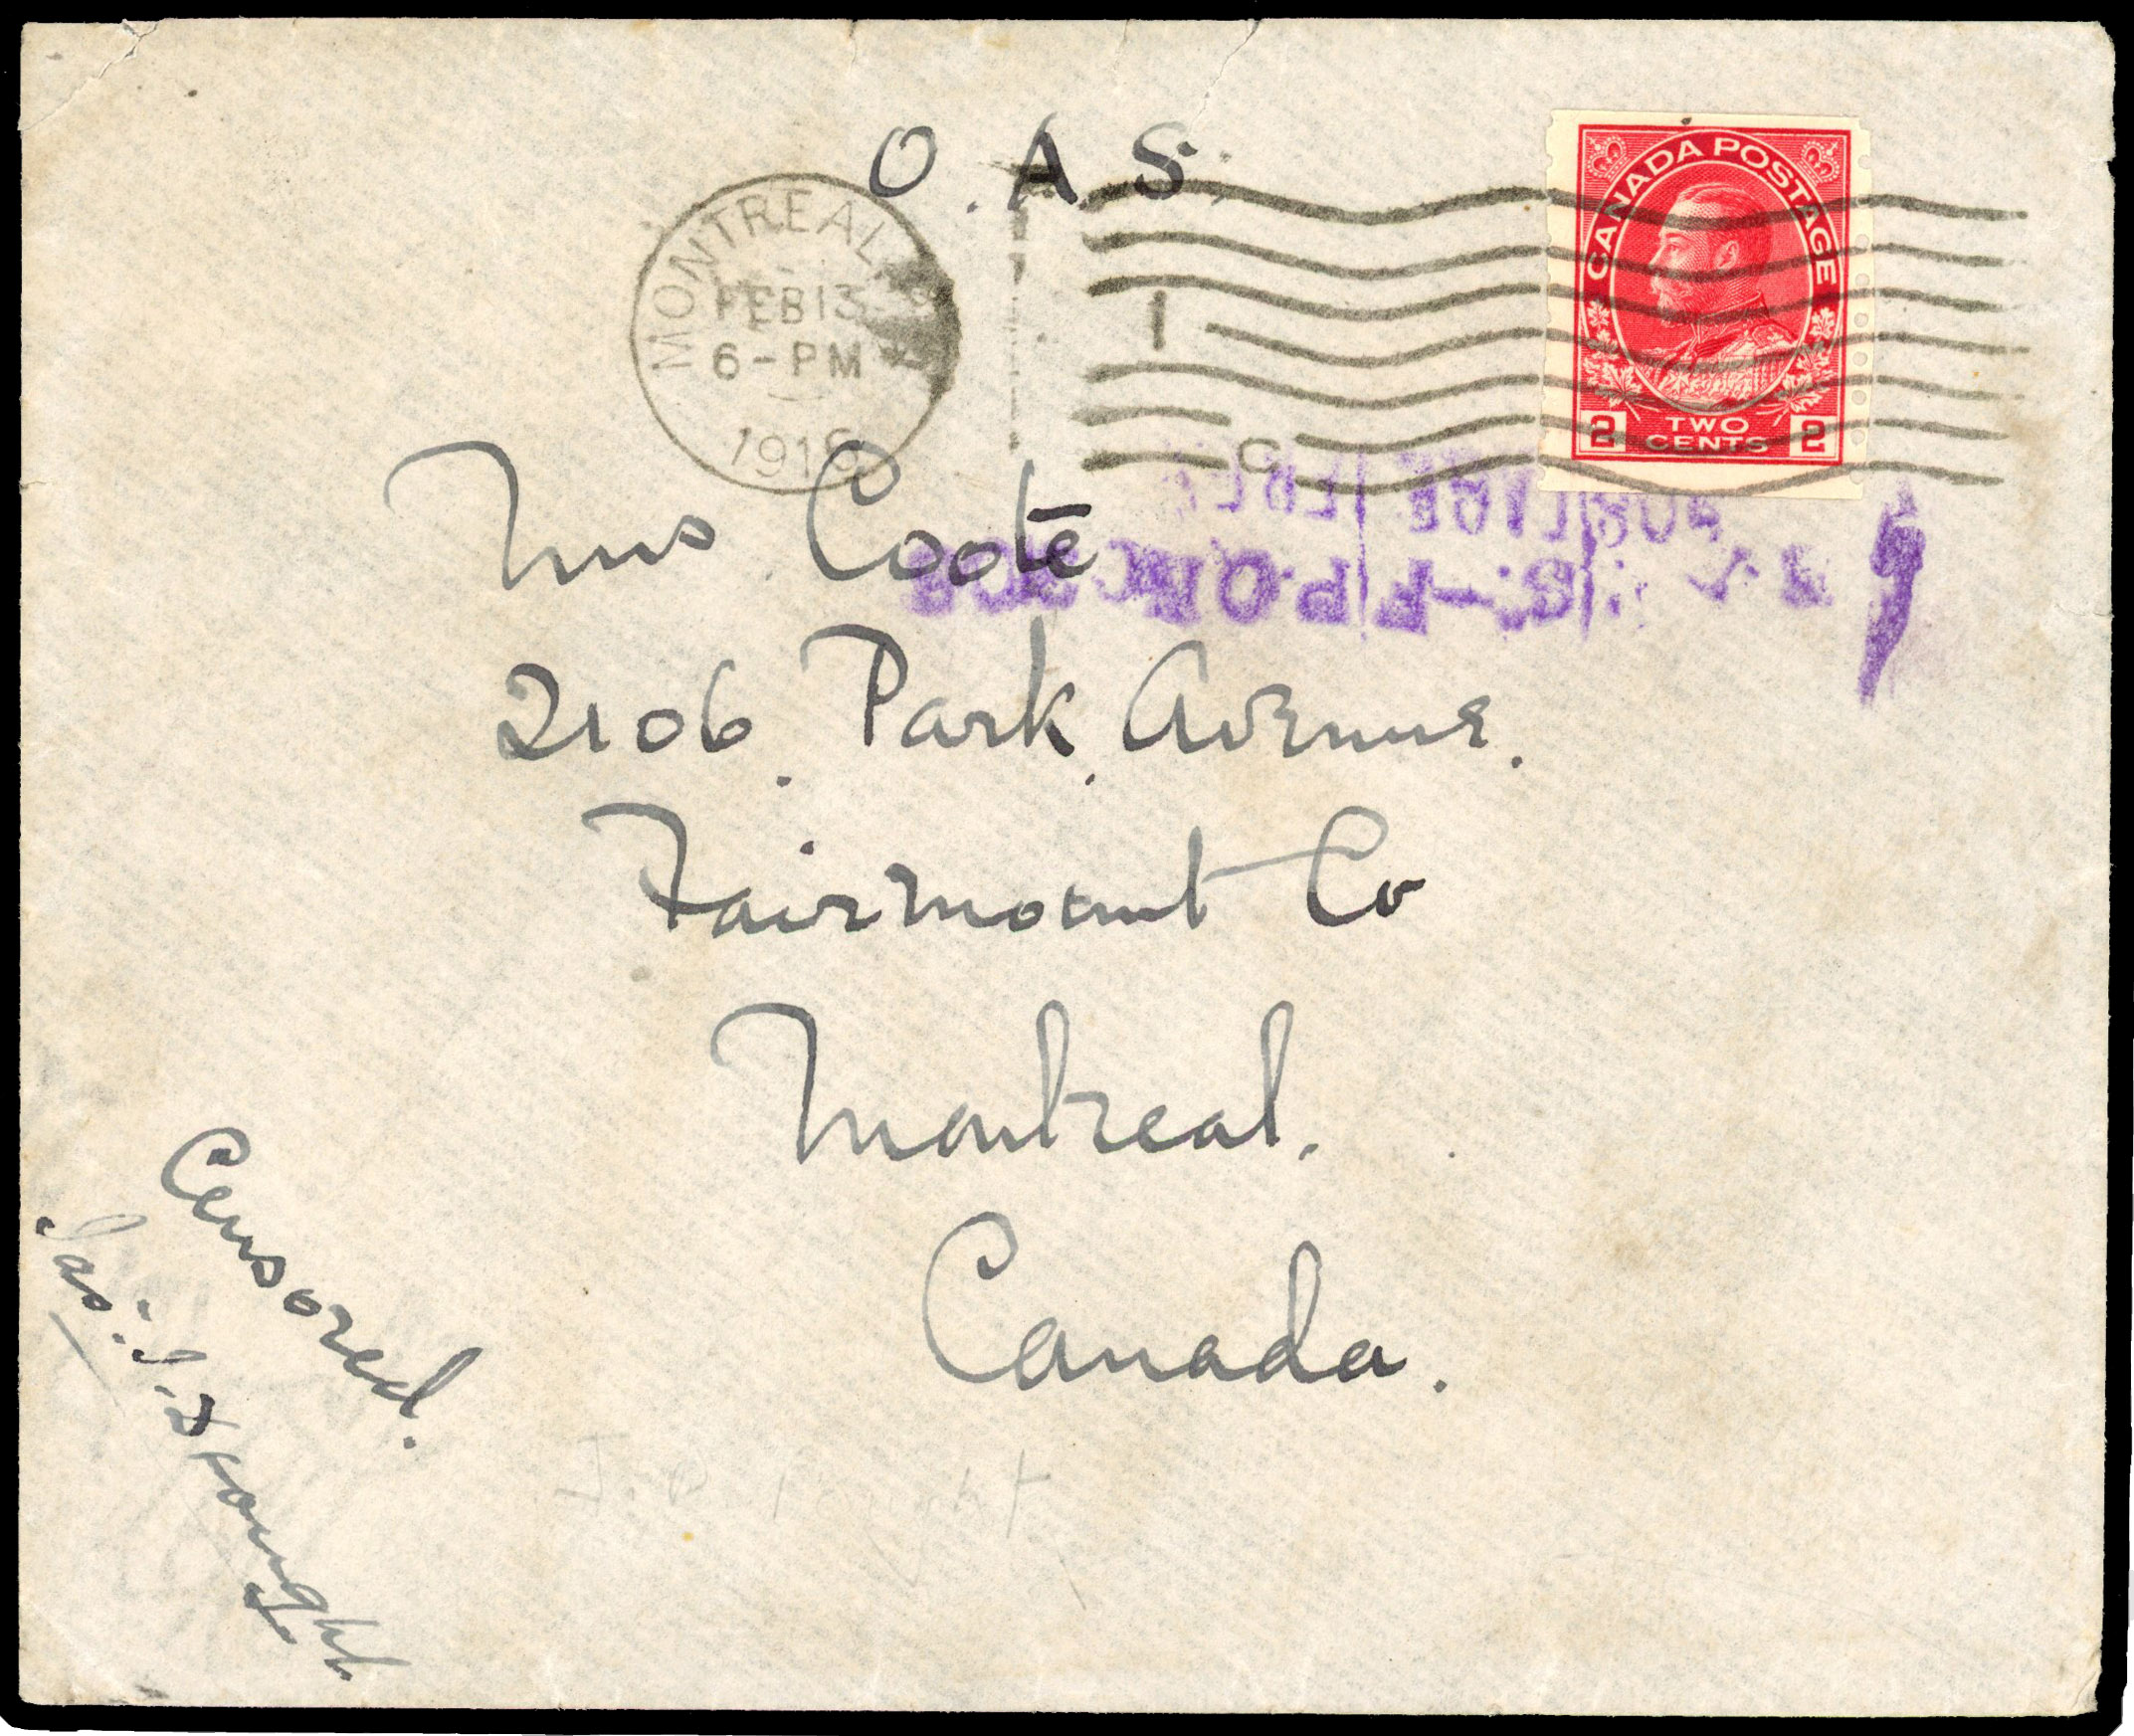 O.A.S.
MONTREAL
FEB 13
6-PM
1916
1
C
CANADA POSTAGE
2 TWO CENTS 2
Coote
2106. Park Avenue.
Fairmount Co
Montreal.
Canada.
Censored.
Jas.